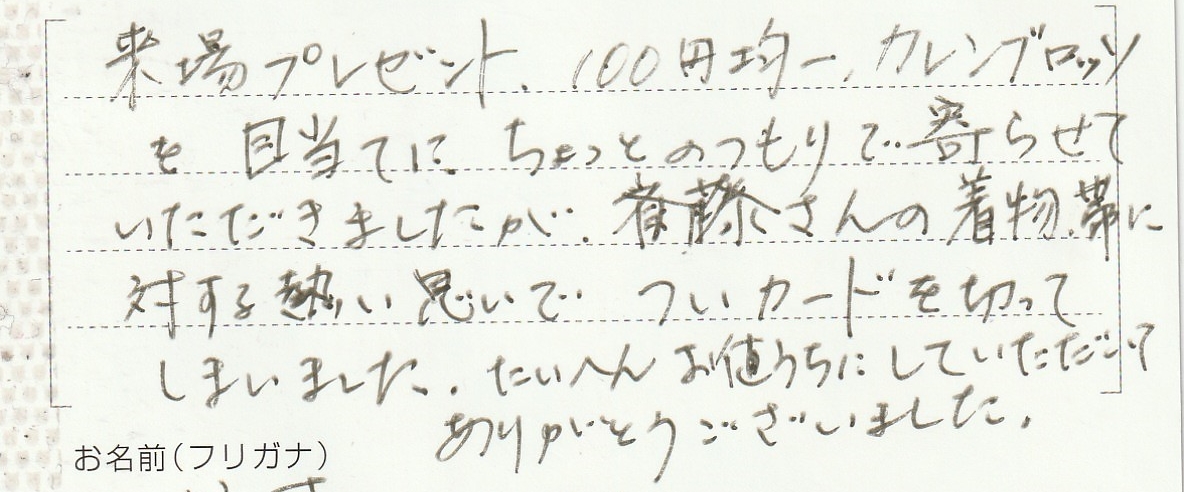 来場プレゼント、100円均一、カレンブロッソ
を目当てに ちょっとのつもりで寄らせて
いただきましたが、斉藤さんの着物、帯に
対する熱い思いで ついカードを切って
しまいました。たいへんお値うちにしていただいて
ありがとうございました。
お名前(フリガナ)